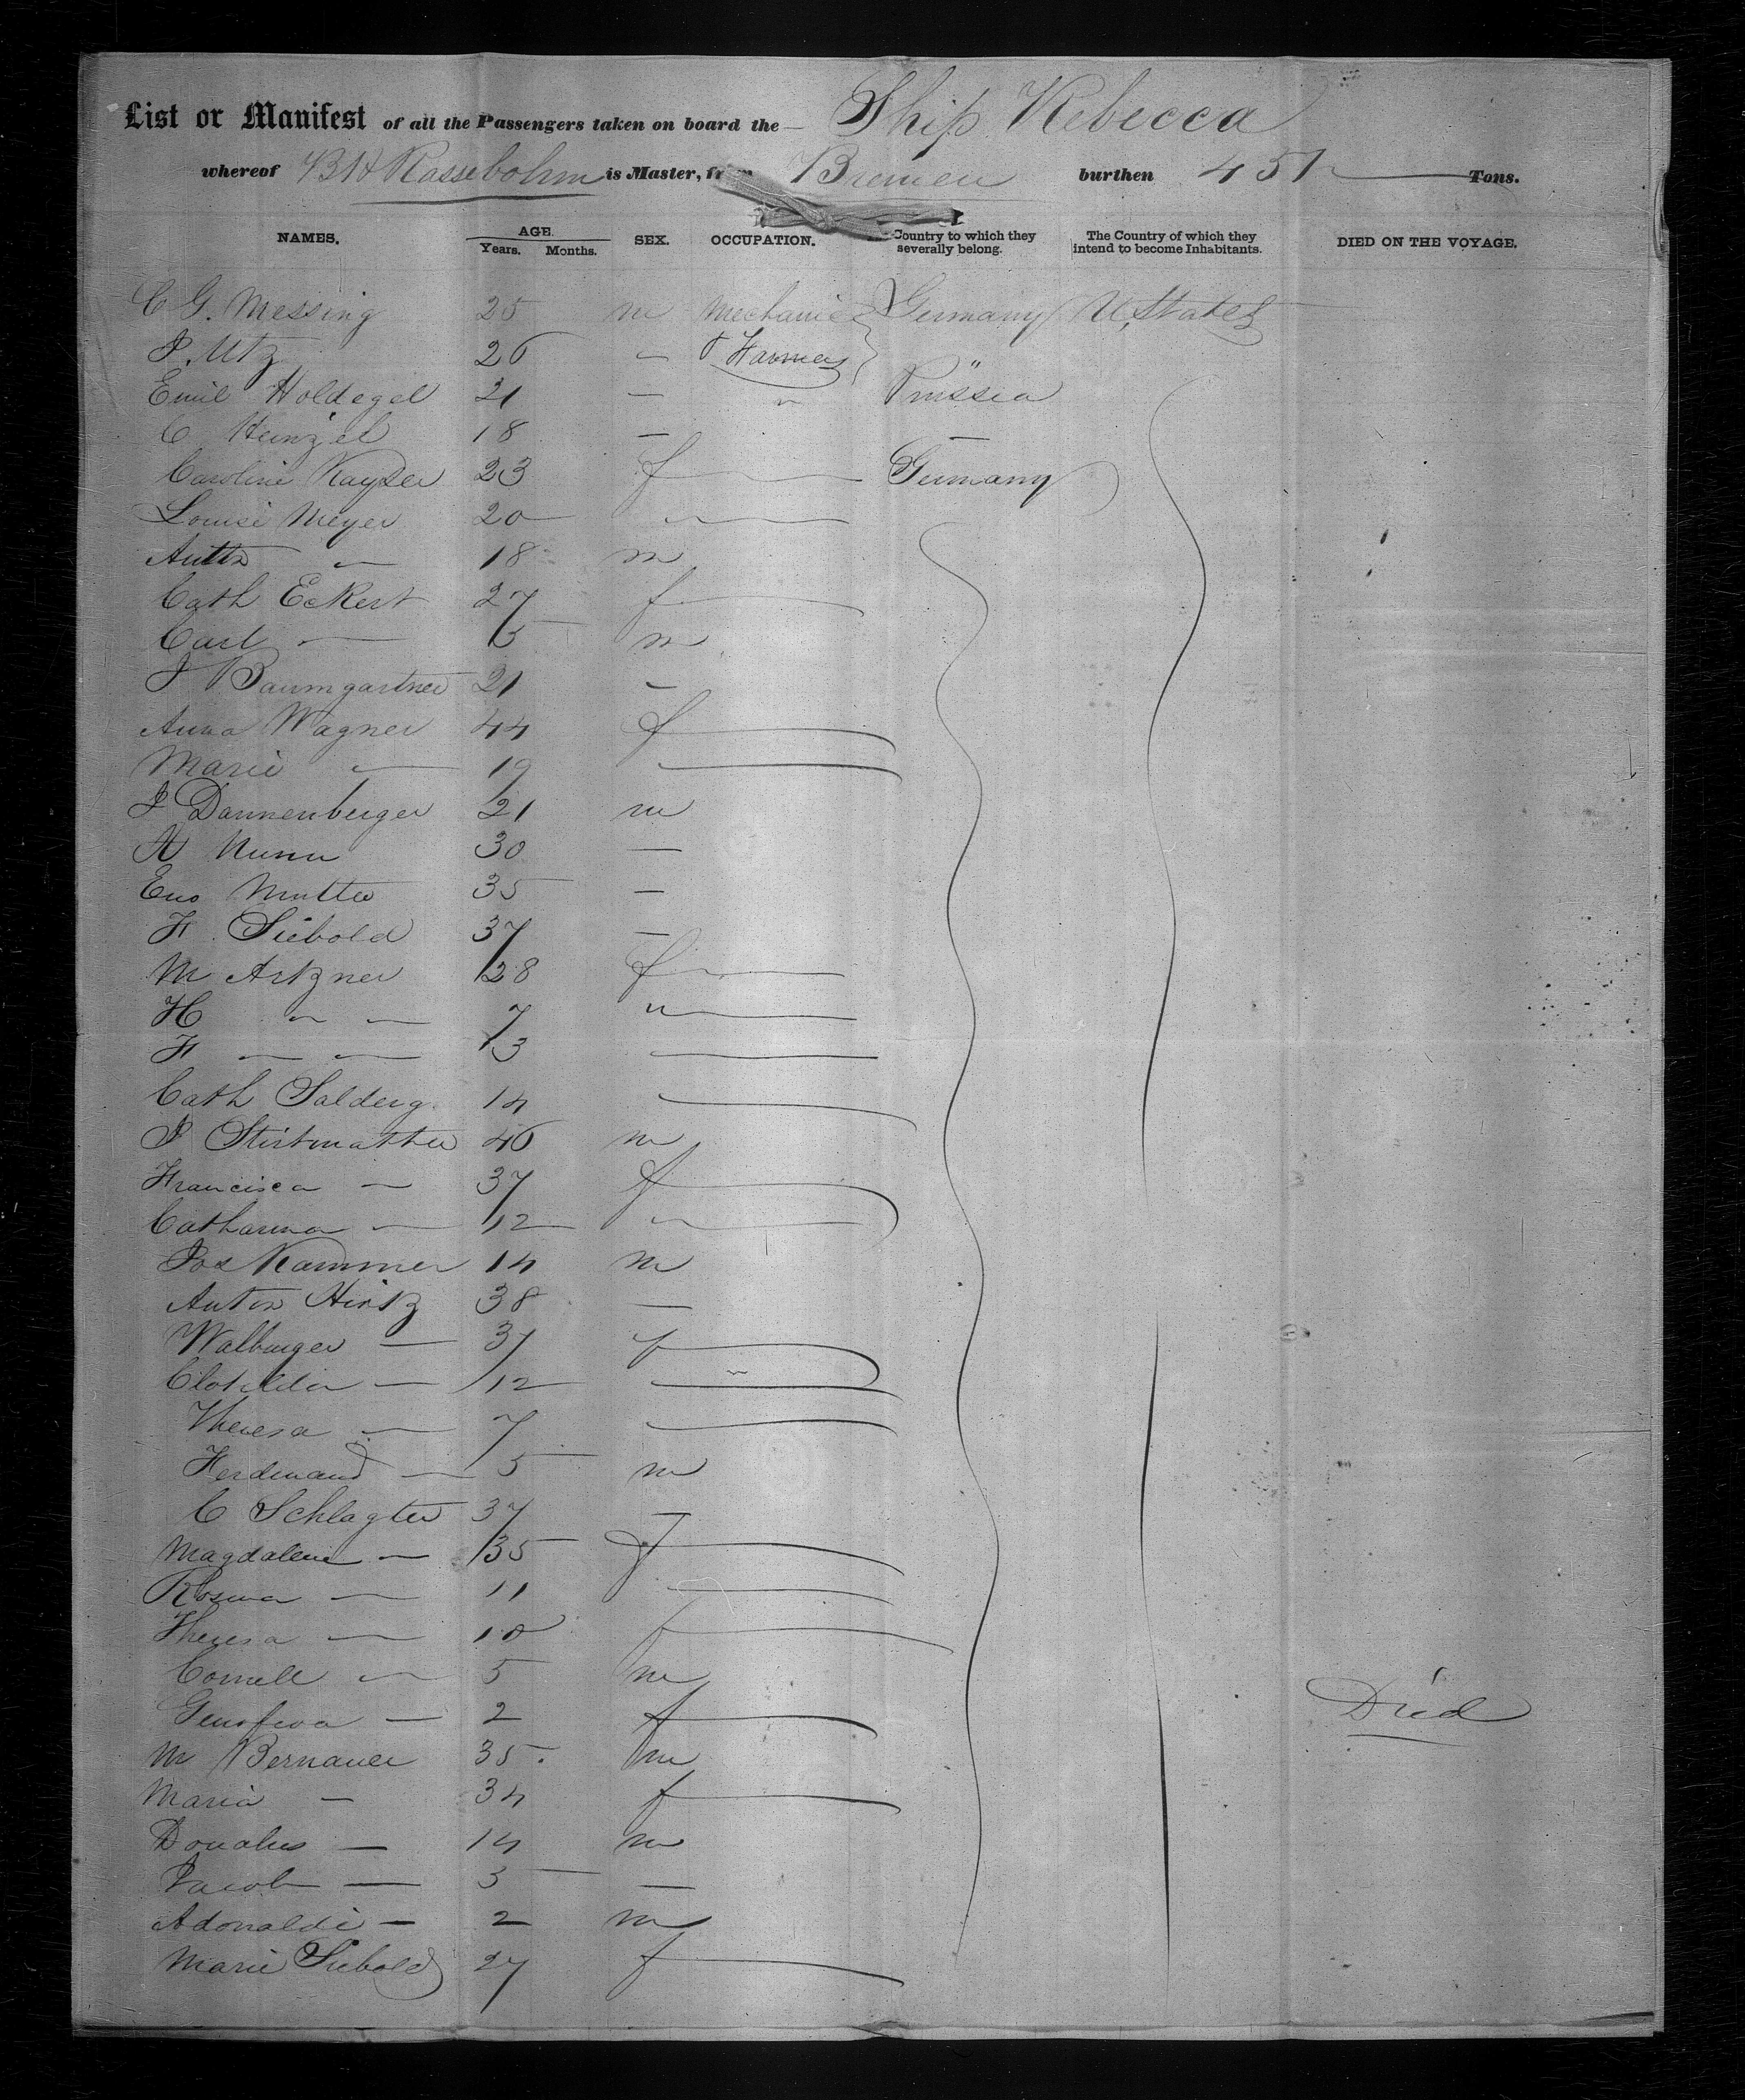 List or Manifest of all the Passengers taken on board the — Ship Rebecca
whereof B H Rassebohm is Master, from Bremen burthen 451 Tons.
NAMES. AGE. Years. Months. SEX. OCCUPATION. Country to which they severally belong. The Country of which they intend to become Inhabitants. DIED ON THE VOYAGE.
C G. Messing 25 m Mechanic Germany U. States
J. Utz 26 — & Farmers "
Emil Holdegel 21 — " Prussia
C Heinzel 18 — —
Caroline Kayser 23 f — Germany
Louise Meyer 20 — —
Anton — 18 m
Cath Eckert 27 f
Carl — 5 m
J Baumgartner 21 —
Anna Wagner 44 f
Marie — 19 —
J Dannenberger 21 m
N Nunn 30 —
Eno Mutter 35 —
F. Siebold 37 —
M Artzner 28 f
H — — 7 —
F — — 3 —
Cath Salderg. 14 —
J Stirtmatter 46 m
Francisca — 37 f
Catharina — 12 —
Jos Kammer 14 m
Anton Hirtz 38 —
Walburger — 37 f
Clotilda — 12 —
Theresa — 7 —
Ferdinand — 5 m
C Schlagter 37 —
Magdalena — 35 f
Rosina — 11 —
Theresa — 10 f
Cornell — 5 m
Genofeva — 2 f Died
M Bernauer 35. m
Maria — 34 f
Donatus — 14 m
Jacob — 5 —
Adonaldi — 2 m
Marie Siebold 27 f